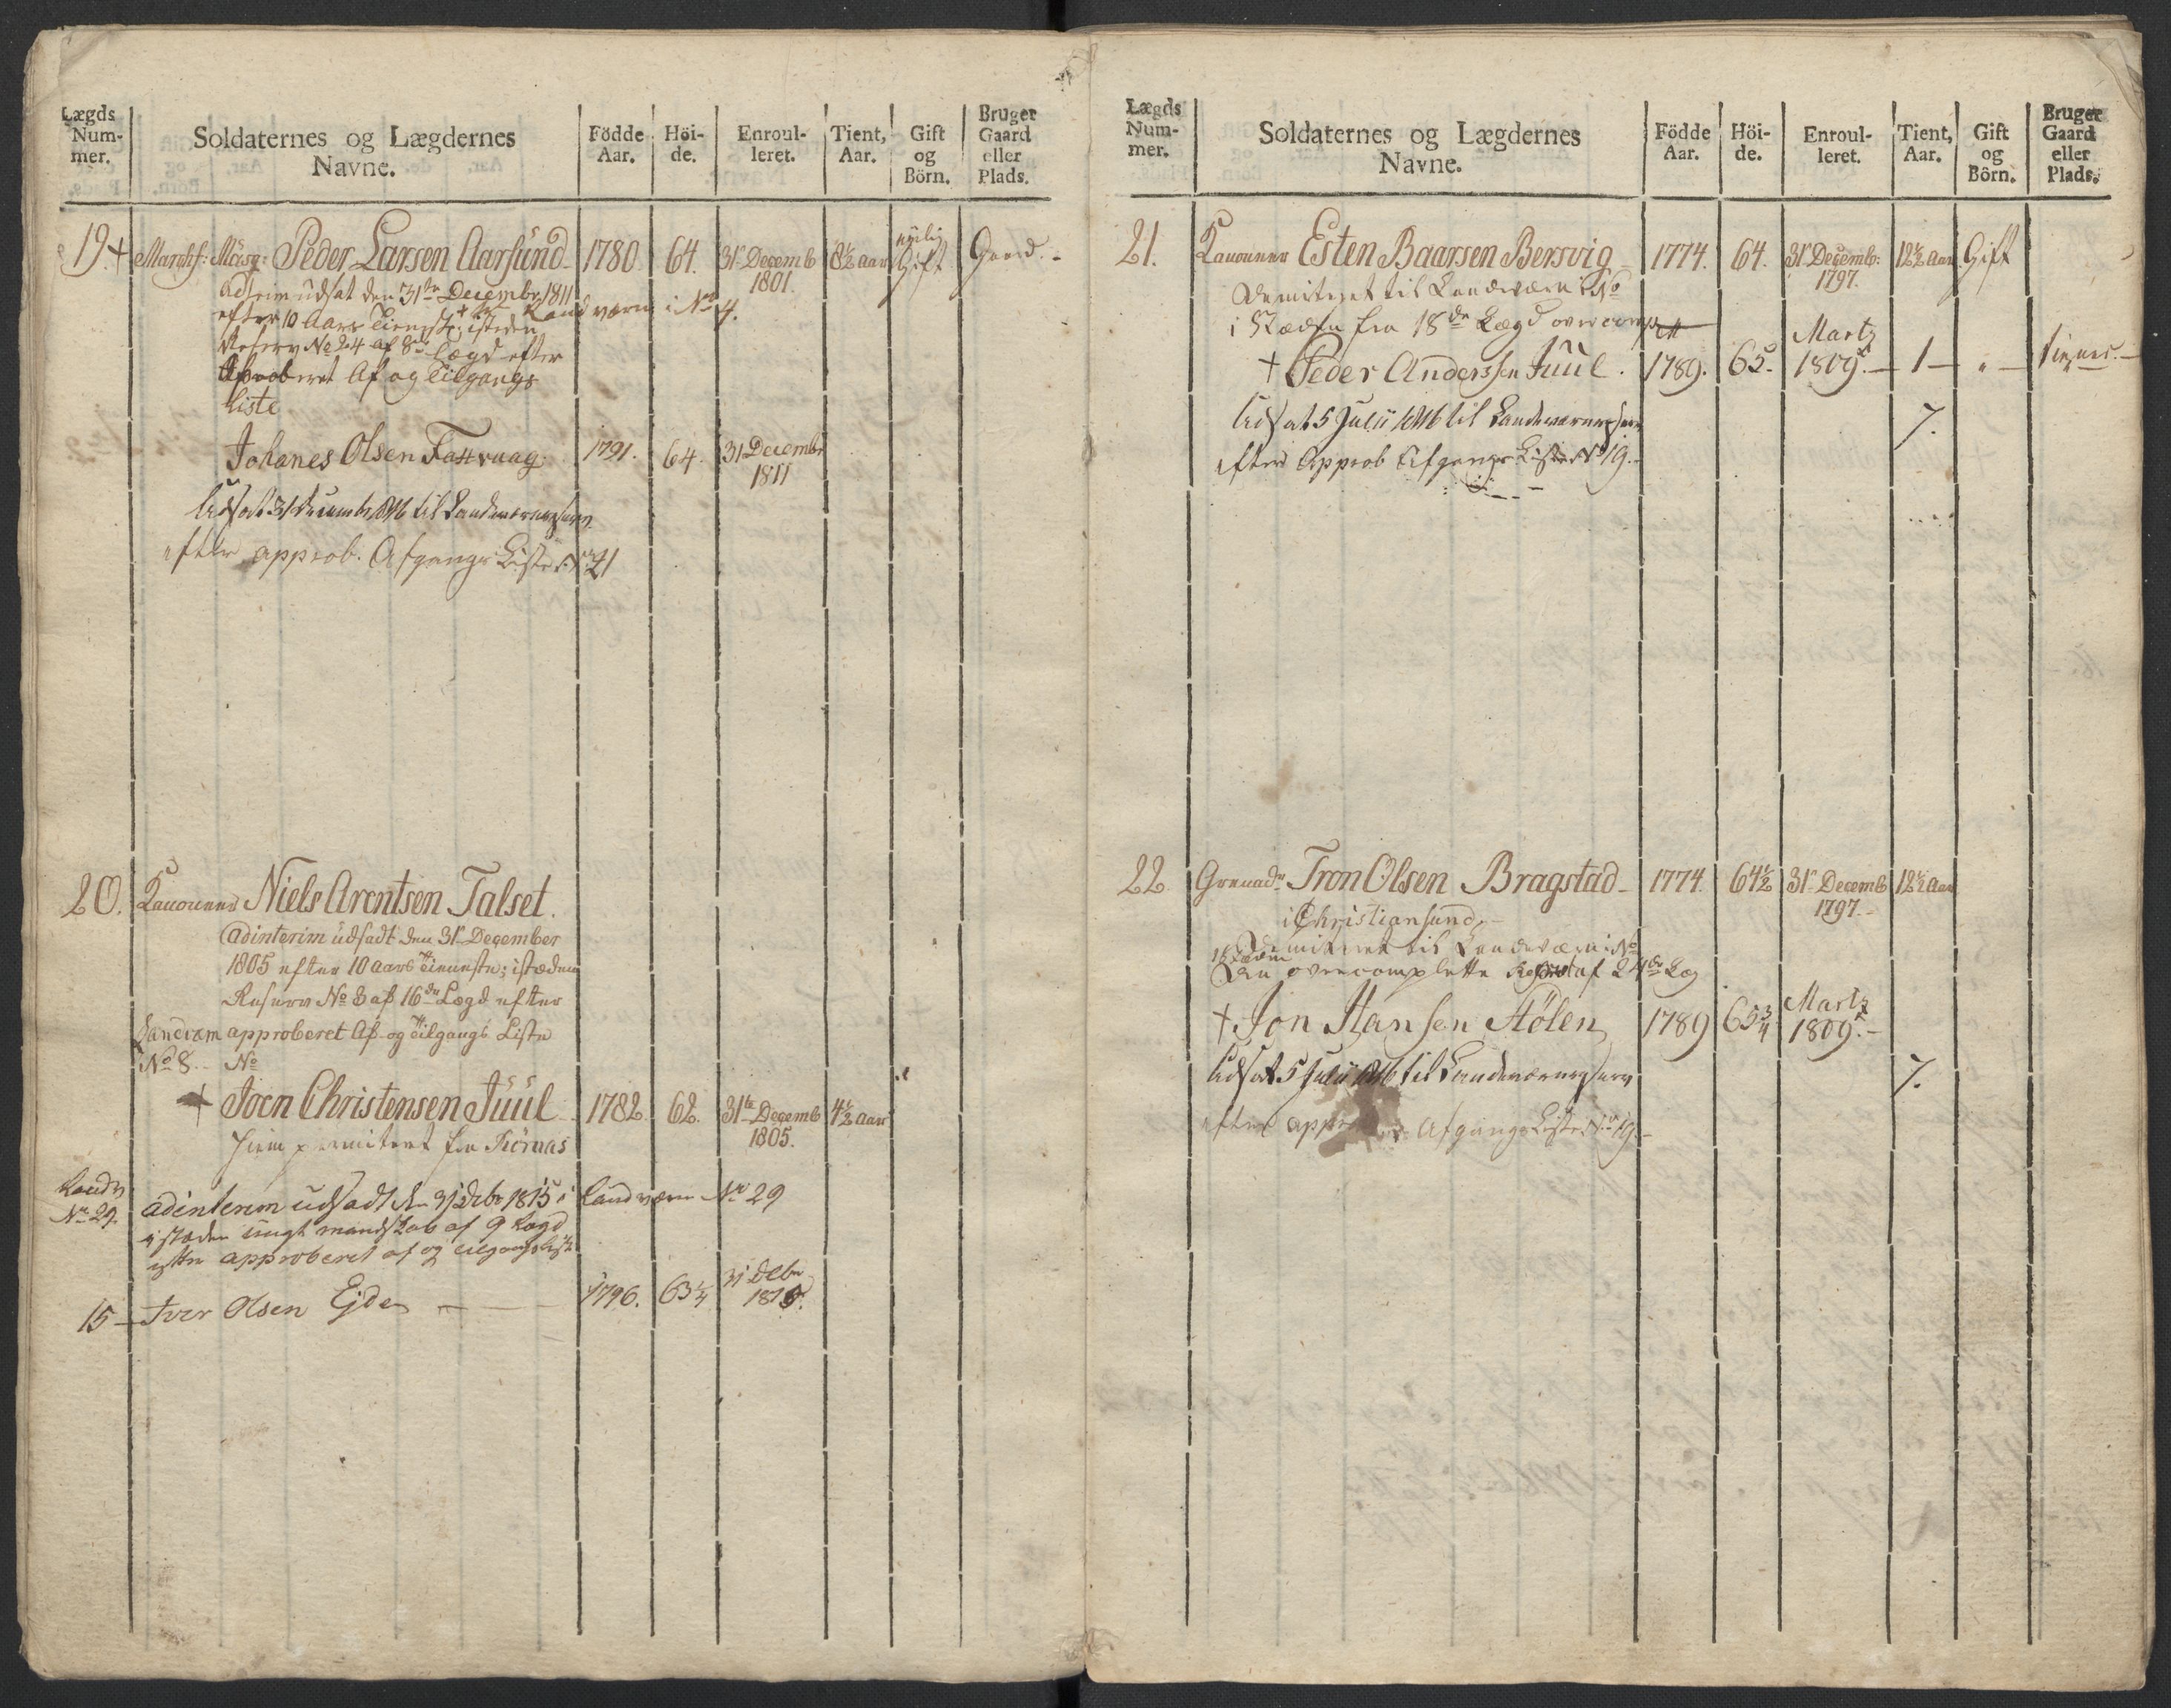 Lægds Num-mer. Soldaternes og Lægdernes Navne. Födde Aar. Höi-de. Enroul-leret. Tient, Aar. Gift og Börn. Bruger Gaard eller Plads.
19. + Peder Larsen Aarsund 1780 64. 31 Decemb 1801. 8½ aar Gift Gaard.
udsat den 31te Decembr 1811
efter 10 Aars Tieneste isteden Landværn i No 4.
Reserv No 24 af 8de Lægd efter
Aproberet Af og Tilgangs
Liste
Johanes Olsen 1791. 64. 31 Decembr 1811
Udsat 31 Decembr 1816 til
efter approb. Afgangs Liste No 21
20. Kanoneer Niels Arentsen Talset.
adinterim udsadt den 31 December
1805 efter 10 aars Tieneste; istæden
Reserv No 8 af 16de Lægd efter
Landværn approberet Af- og Tilgangs Liste
No 8. No
+ Joen Christensen Juul 1782. 62. 31te Decemb 1805. 4½ aar
fra
Landv No 29. adinterim udsadt den 31 Dcbr 1815 i Landværn No 29
istæden ungt mandskab af 9 Lægd
efter approberet af og tilgangsliste
15 - Iver Olsen Eide 1796. 63¼ 31 Dcbr 1815.
Lægds Num-mer. Soldaternes og Lægdernes Navne. Födde Aar. Höi-de. Enroul-leret. Tient, Aar. Gift og Börn. Bruger Gaard eller Plads.
21. Kanoneer Esten Baarsen Bersvig 1774. 64. 31 Decemb: 1797. 12½ Aar Gift
til Landværn No
i Stæden fra 18de Lægd
+ Peder Anderssen Juul. 1789. 65. Martz 1809. 1
Udsat 5 Julii 1816 til 7.
efter Approb Afgangs Liste No 19.
22 Grenadr Tron Olsen Bragstad 1774. 64½ 31 Decemb 1797. 12½ Aar
i Christiansund
til Landværn No
istæden
Den overcomplette af 24de Læg
+ Jon Hansen Hølen 1789 65¾ Martz 1809.
Udsat 5 Julii 1816 til 7.
efter Afgangs Liste No 19.